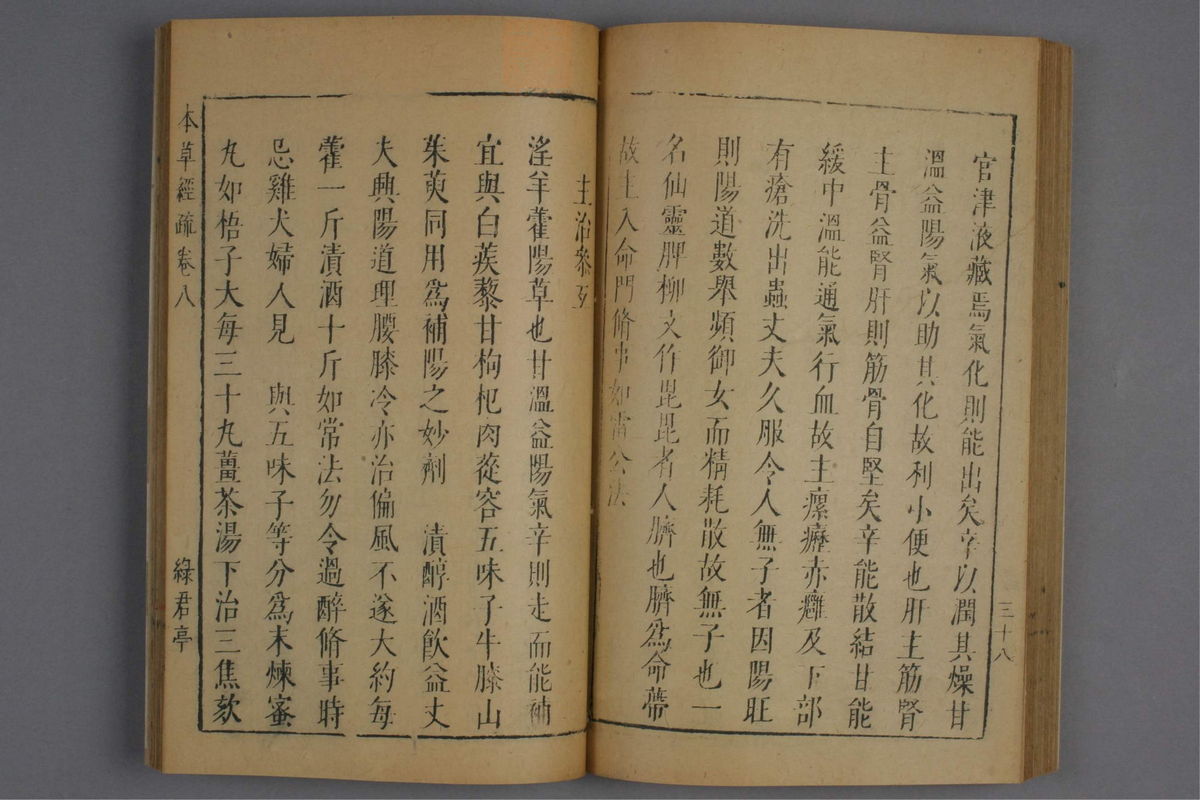 官津液藏焉氣化則能出矣辛以潤其燥甘
溫益陽氣以助其化故利小便也肝主筋腎
主骨益腎肝則筋骨自堅矣辛能散結甘能
緩中溫能通氣行血故主瘰癧赤癰及下部
有瘡洗出蟲丈夫久服令人無子者因陽旺
則陽道數舉頻御女而精耗散故無子也一
名仙靈脾柳文作毘毘者人臍也臍為命蒂
故主入命門脩事如雷公法
三十八
主治參互
淫羊藿陽草也甘溫益陽氣辛則走而能補
宜與白蒺藜甘枸杞肉蓯容五味子牛膝山
茱萸同用為補陽之妙劑 漬醇酒飲益丈
夫興陽道理腰膝冷亦治偏風不遂大約每
藿一斤漬酒十斤如常法勿令過醉脩事時
忌雞犬婦人見 與五味子等分為末煉蜜
丸如梧子大每三十丸薑茶湯下治三焦欬
本草經疏 卷八
綠君亭